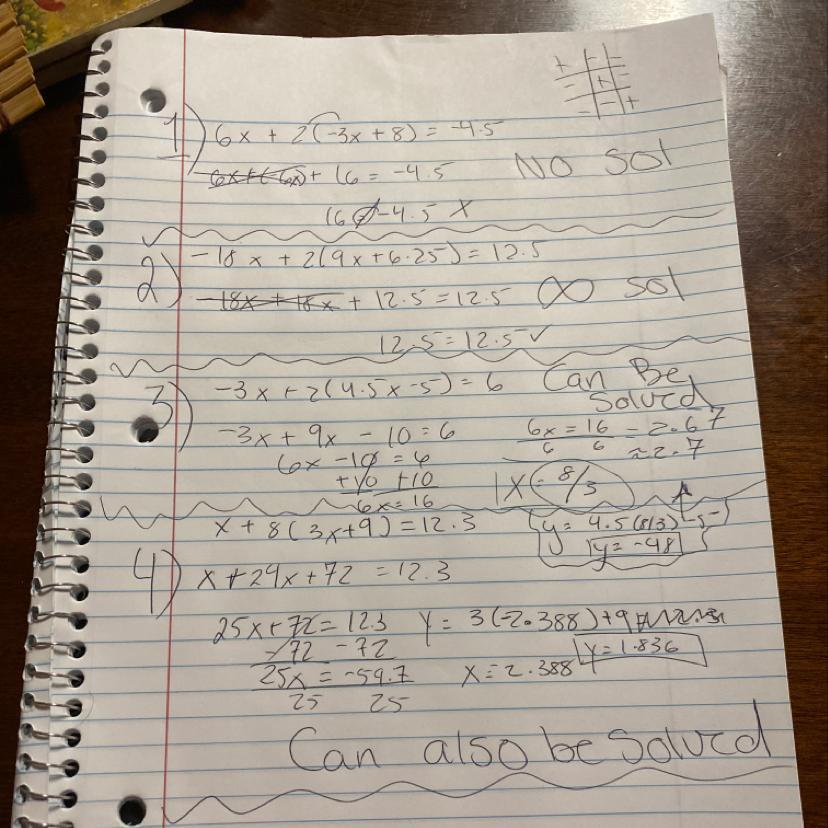 1) 6x + 2(-3x + 8) = -4.5
6x + (-6x) + 16 = -4.5 No Sol
16 ≠ -4.5 X
2) -18x + 2(9x + 6.25) = 12.5
-18x + 18x + 12.5 = 12.5 ∞ Sol
12.5 = 12.5 ✓
3) -3x + 2(4.5x - 5) = 6 Can Be Solved
-3x + 9x - 10 = 6 6x = 16 = 2.67
6x - 10 = 6 6 6 ≈ 2.7
+10 +10 1x = 8/3
6x = 16
x + 8(3x + 9) = 12.3 y = 4.5(8/3) - 5
y = -48
4) x + 24x + 72 = 12.3
25x + 72 = 12.3 y = 3(-2.388) + 9
-72 -72 y = 1.836
25x = -59.7 x = 2.388
25 25
Can also be Solved